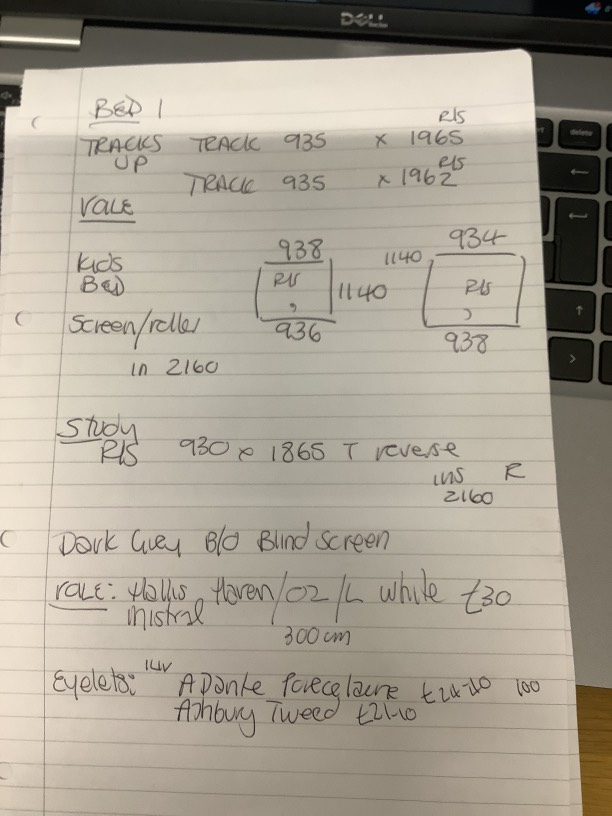 DELL
delete
BED 1
R/S
TRACKS TRACK 935 x 1965
UP
R/S
TRACK 935 x 1962
VOLE
938
934
Kids
BED
R/S
1140
1140
R/S
936
938
Screen/roller
in 2160
Study
R/S 930 x 1865 T reverse
ins R
2160
Dark Grey B/O Blind Screen
VOLE: Hollis Haven/OZ/L White £30
mistral
300cm
Eyelets:
Adante Porcelaine £24-40 100
Ashbury Tweed £21-10